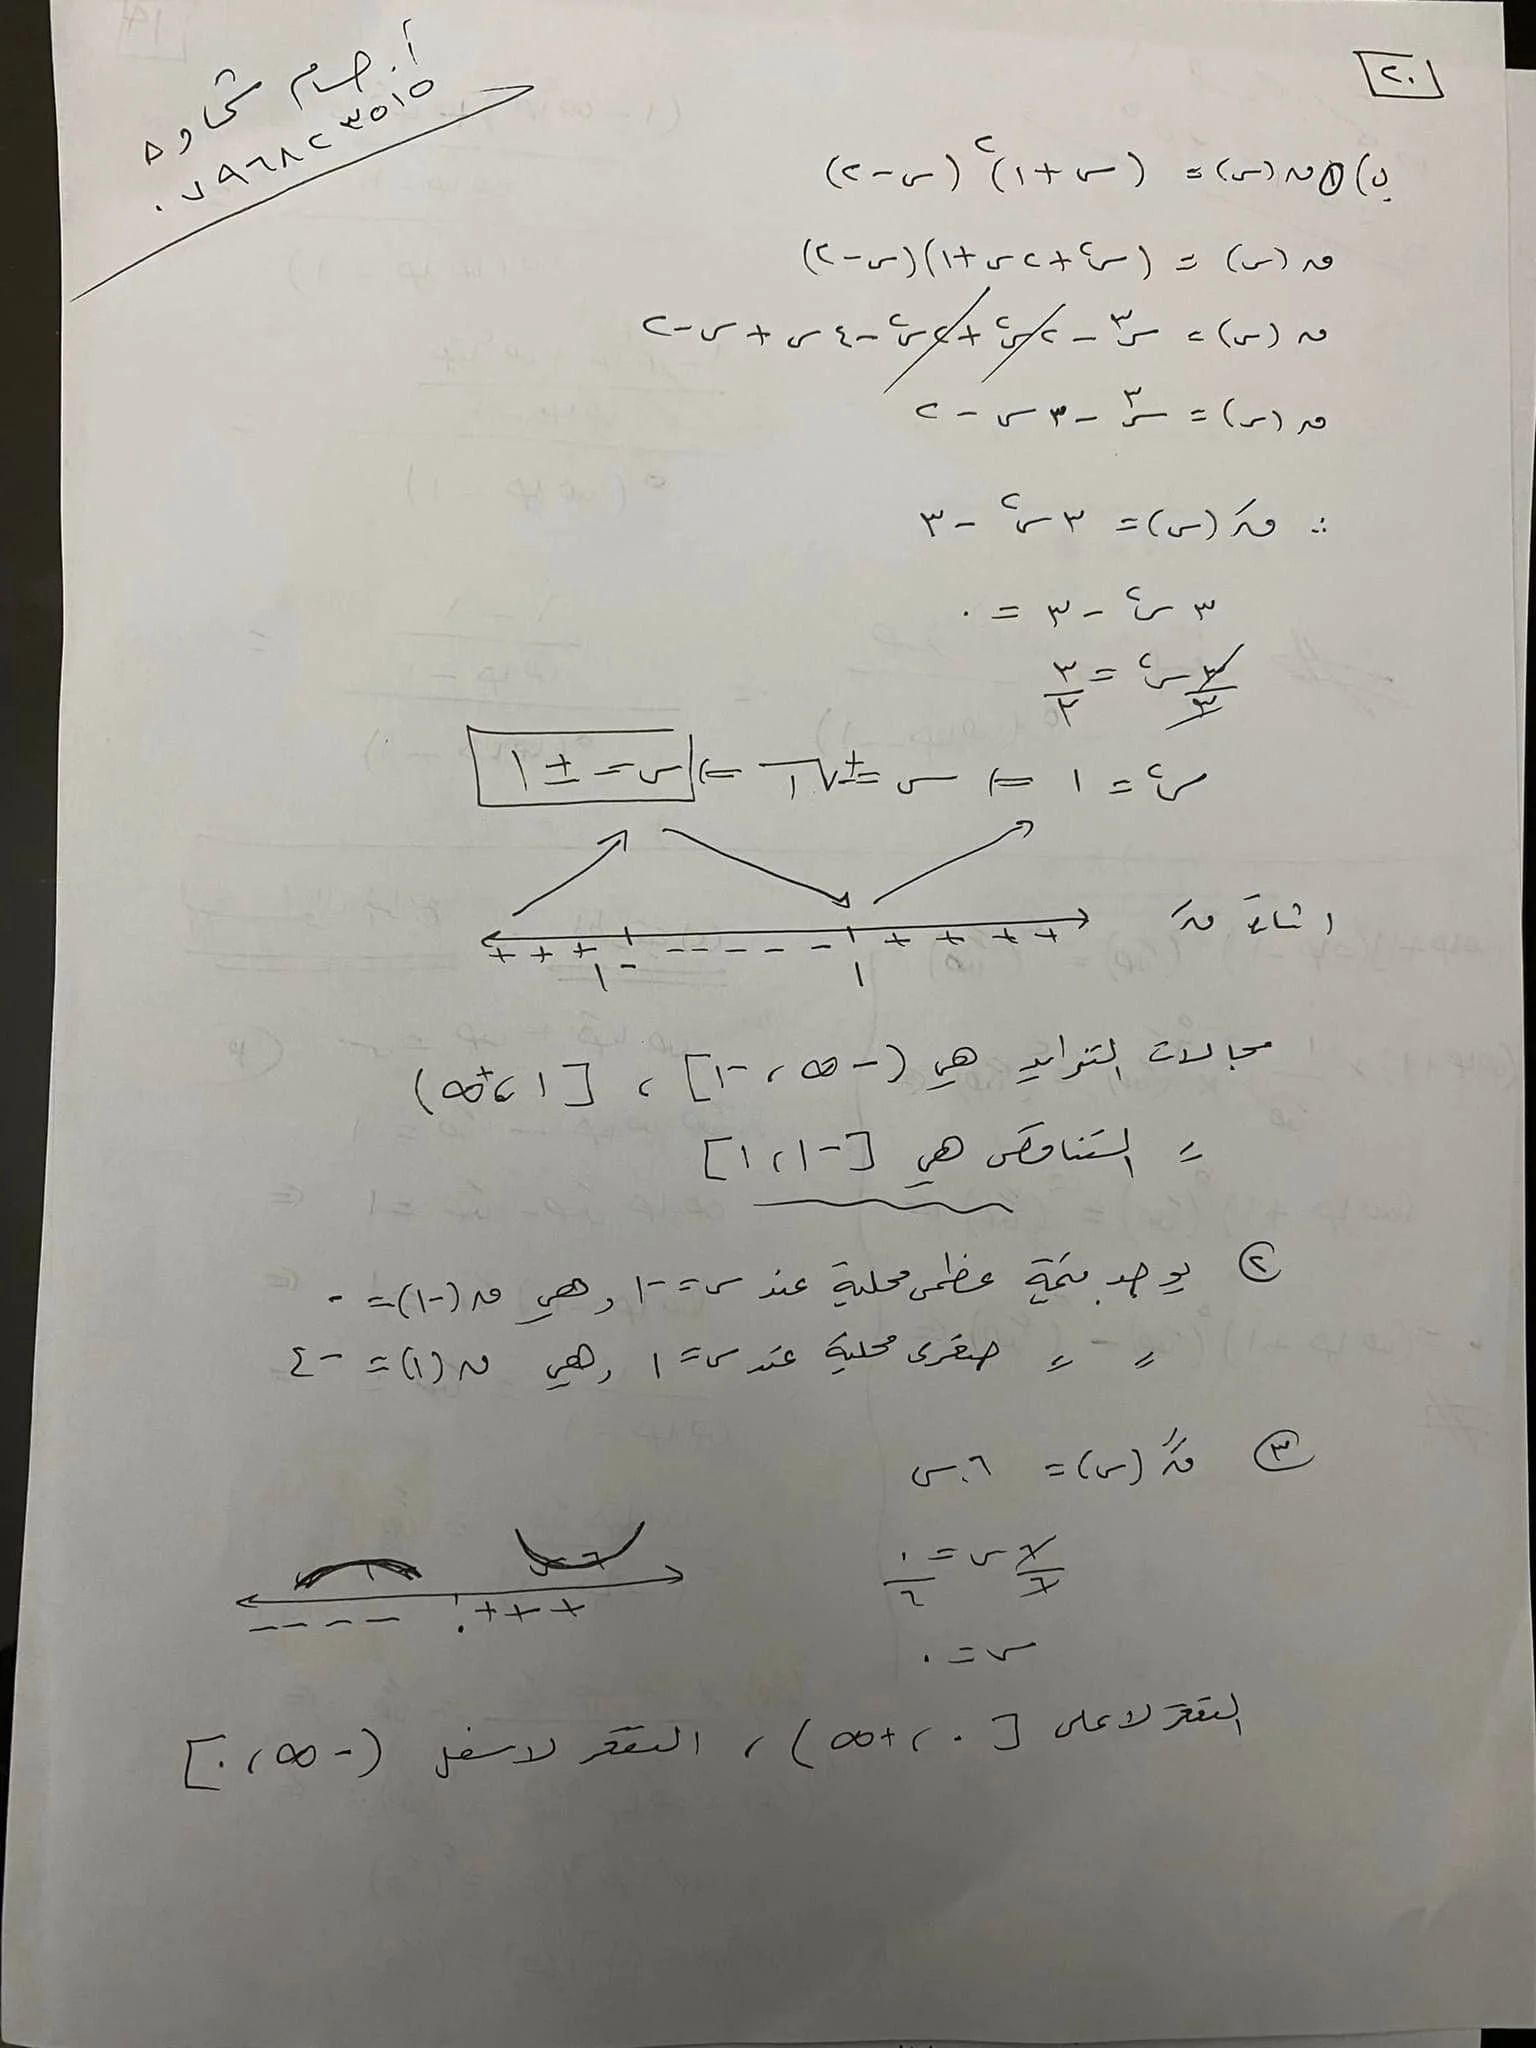 ٢٠
أ. حسام شحادة
٠٧٩٦٨٢٣٥١٥
ب) ① ق(س) = (س + ١)² (س - ٢)
ق(س) = (س² + ٢س + ١)(س - ٢)
ق(س) = س³ - ٢س² + ٢س² - ٤س + س - ٢
ق(س) = س³ - ٣س - ٢
∴ قَ(س) = ٣س² - ٣
٣س² - ٣ = ٠
٣س²/٣ = ٣/٣
س² = ١ ⇐ س = ±√١ ⇐ س = ± ١
اشارة قَ
+ + + - - - - - + + + +
-١ ١
مجالات التزايد هي (-∞، -١] ، [١، +∞)
= التناقص هي [-١، ١]
② يوجد قيمة عظمى محلية عند س = -١ وهي ق(-١) = ٠
= = صغرى محلية عند س = ١ وهي ق(١) = -٤
③ قً(س) = ٦س
٦س/٦ = ٠/٦
- - - - ٠ + + +
س = ٠
التقعر لاعلى [٠، +∞) ، التقعر لاسفل (-∞، ٠]